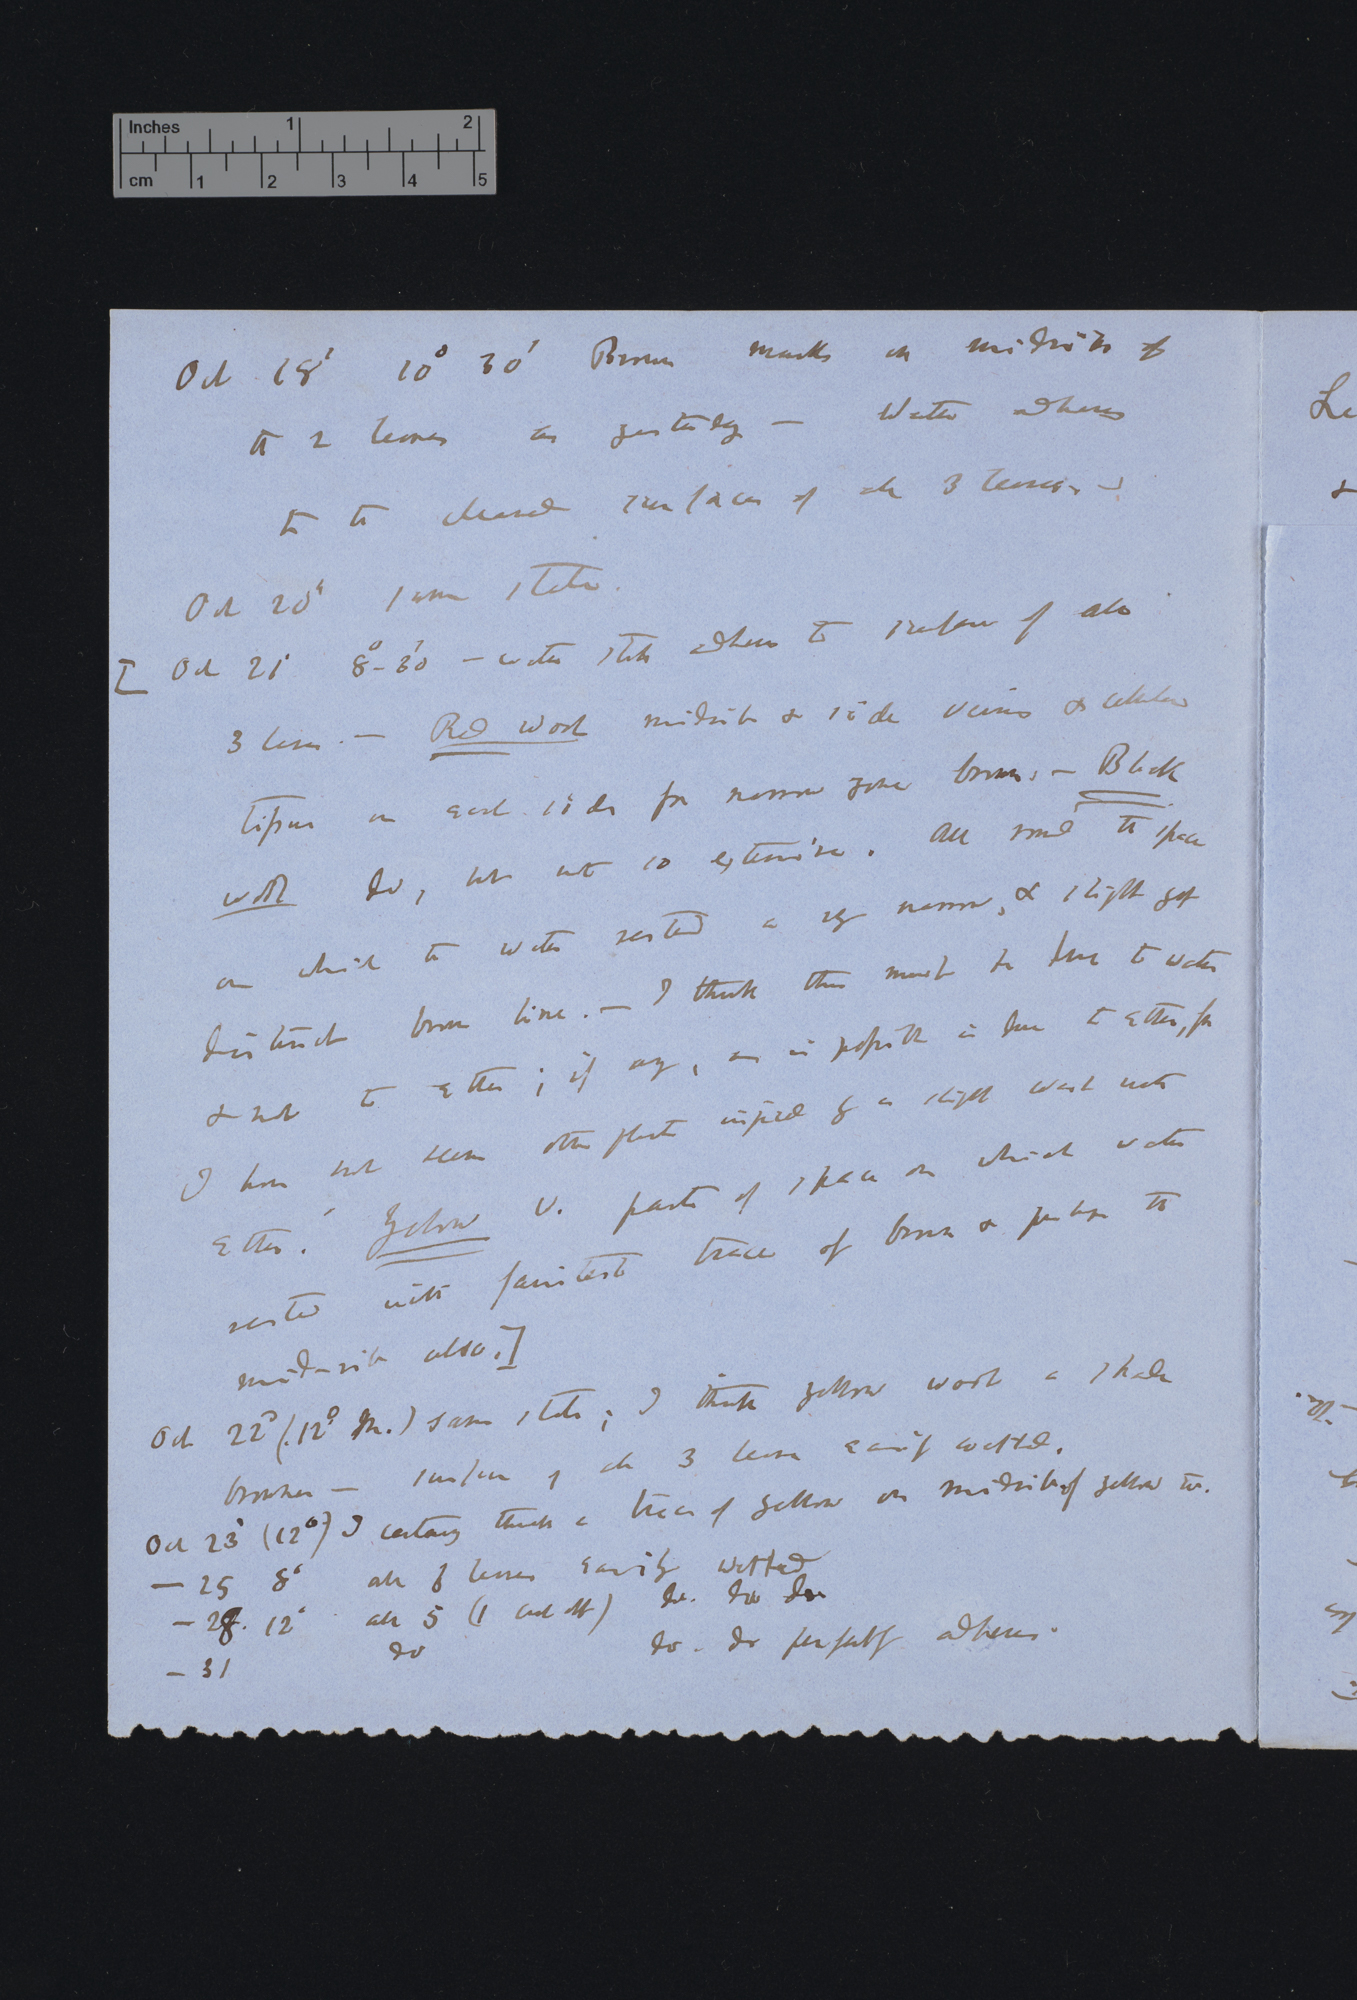 Inches 1 2
cm 1 2 3 4 5
Oct 18' 10° 30' Brown marks on midribs of
the 2 leaves as yesterday — Water adheres
to the cleaned surfaces of all 3 leaves —
Oct 20' same state.
[Oct 21' 8°-30' — water still adheres to surface of all
3 leaves. — Red wool midrib & side veins & cellular
tissue on each side for narrow zone brown. — Black
wool do, but not so extensive. All round the space
on which the water rested a very narrow, & slight yet
distinct brown line. — I think this must be due to water
& not to ether; if any, as is possible is due to ether, for
I have not seen other plants injured by a slight wash with
ether. Yellow W. parts of space on which water
rested with faintest trace of brown & perhaps the
mid-rib also.]
Oct 22° (12° ) same state; I think yellow wool a shade
browner — surface of all 3 leaves easily wetted.
Oct 23' (12°) I certainly think a trace of yellow on midrib of yellow
— 25 8° all leaves easily wetted
— 28. 12° all 5 (1 cut off) do. do do
— 31 do do. do perfectly adheres.
Le
&